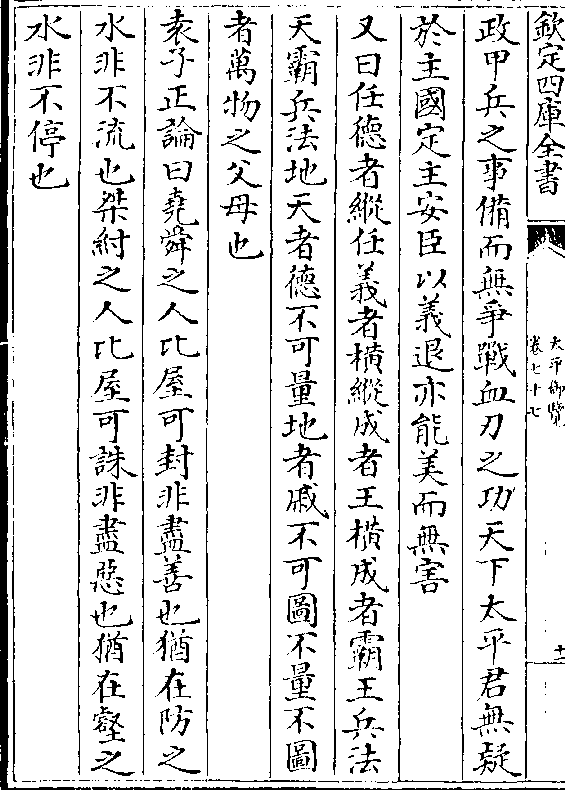 欽定四庫全書
太平御覽
卷七十七
十一
政甲兵之事備而無爭戰血刀之功天下太平君無疑
於主國定主安臣以義退亦能美而無害
又曰任德者縱任義者横縱成者王横成者霸王兵法
天霸兵法地天者德不可量地者戚不可圖不量不圖
者萬物之父母也
袁子正論曰堯舜之人比屋可封非盡善也猶在防之
水非不流也桀紂之人比屋可誅非盡惡也猶在壑之
水非不停也